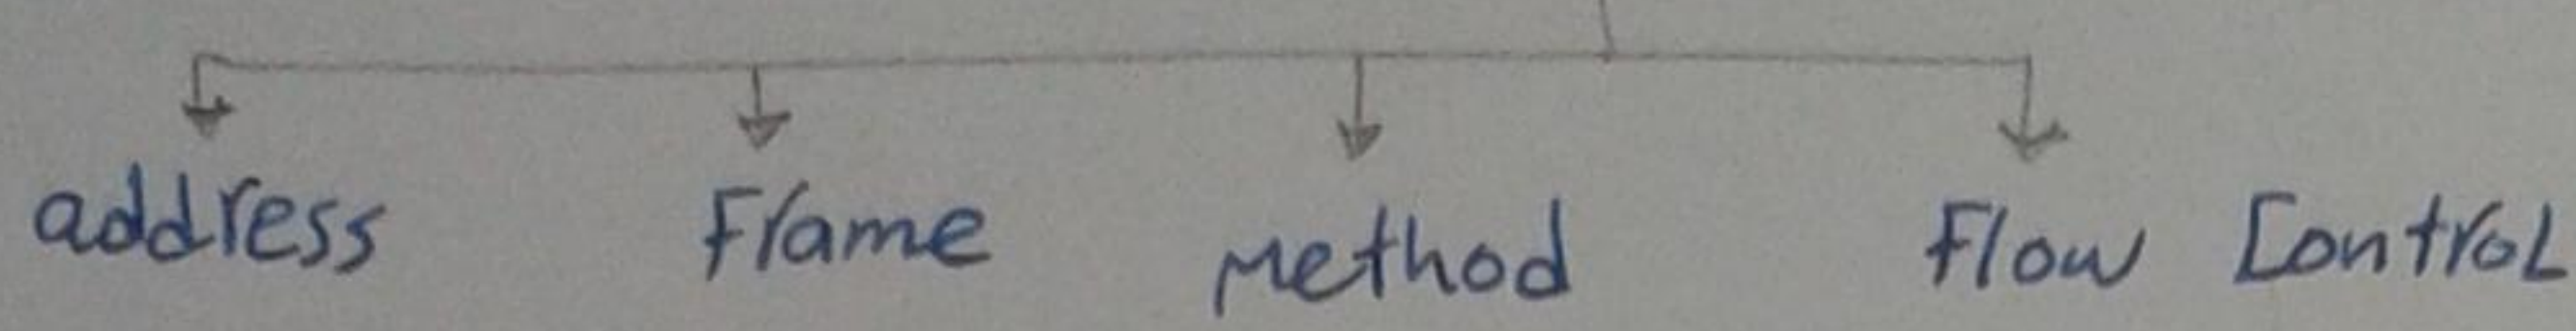 address Frame Method Flow Control